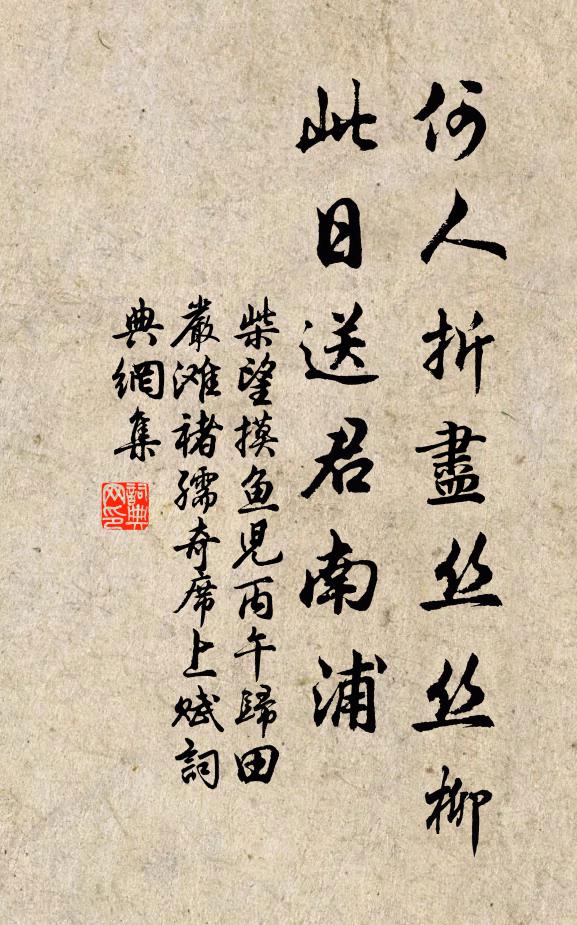 何人折盡丝丝柳
此日送君南浦
柴望摸鱼児丙午歸田
嚴滩褚孺奇席上赋詞
典網集
詞典
网印